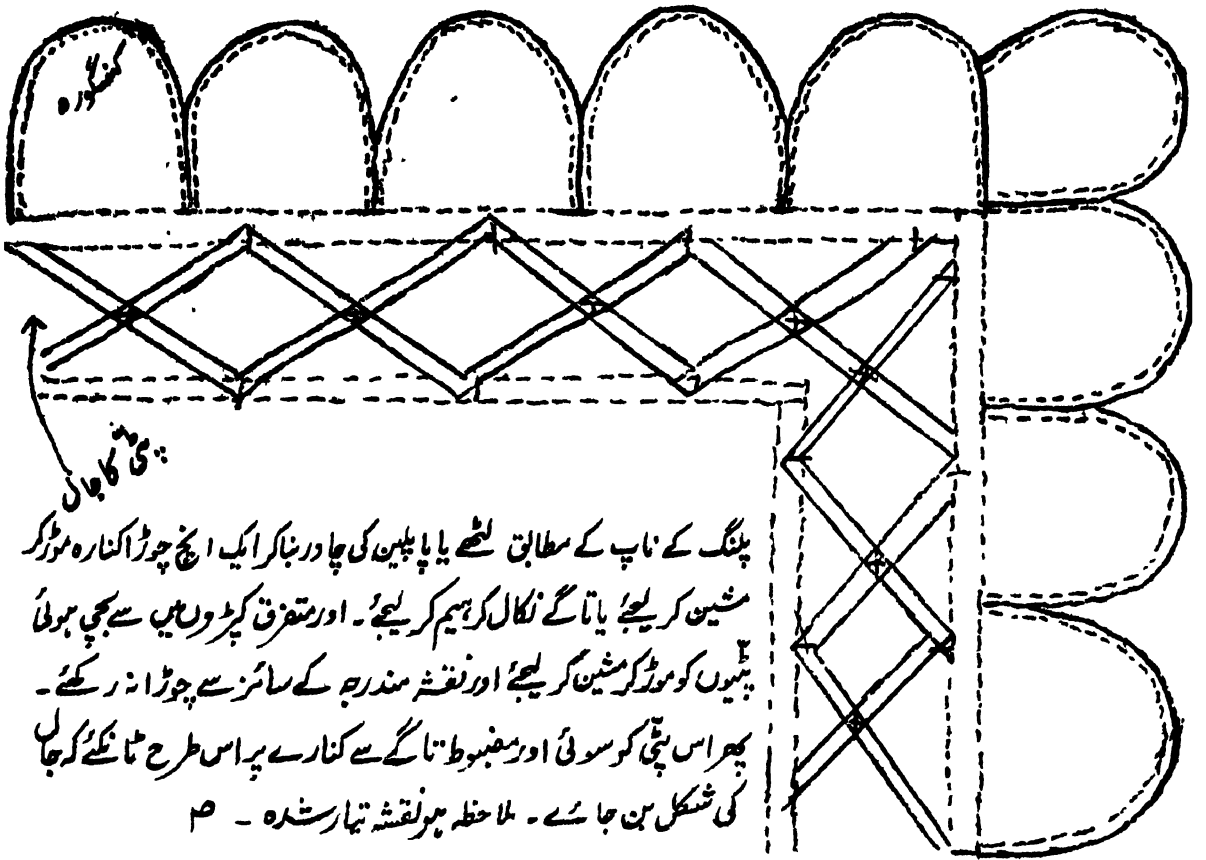 کنگورہ
پٹی کا جال
پلنگ کے ناپ کے مطابق لٹھے یا پاپلین کی چادر بنا کر ایک انچ چوڑا کنارہ موڑ کر
مشین کر لیجئے یا تاگے نکال کر ہیم کر لیجئے۔ اور متفرق کپڑوں میں سے بچی ہوئی
پٹیوں کو موڑ کر مشین کر لیجئے اور نقشہ مندرجہ کے سائز سے چوڑا نہ رکھئے۔
پھر اس پٹی کو سوئی اور مضبوط تاگے سے کنارے پر اس طرح ٹانکئے کہ جال
کی شکل بن جائے۔ ملاحظہ ہو نقشہ تیار شدہ ۔